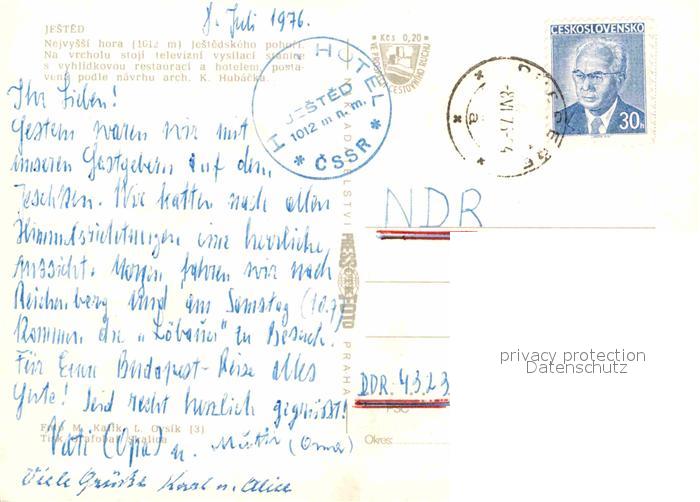 8. Juli 1976.
JEŠTĚD
Nejvyšší hora (1012 m) Ještědského pohoří.
Na vrcholu stojí televizní vysílací stanice
s vyhlídkovou restaurací a hotelem, posta-
vená podle návrhu arch. K. Hubáčka.
Kčs 0,20
HOTEL
JEŠTĚD
1012 m n. m.
ČSSR
ČESKOSLOVENSKO
30h
Ihr Lieben!
Gestern waren wir mit
unseren Gastgebern auf dem
Jeschken. Wir hatten nach allen
Himmelsrichtungen eine herrliche
Aussicht. Morgen fahren wir nach
Reichenberg und am Samstag (10.7)
kommen die "Löbauer" zu Besuch.
Für Eure Budapest-Reise alles
Gute! Seid recht herzlich gegrüßt!
Vati (Opa) u. Mutti (Oma)
Viele Grüße Karl u. Alice
NAKLADATELSTVÍ
PRESSFOTO
PRAHA
NDR
DDR. 4323
PSČ
Okres:
Foto M. Kalík, L. Ovsík (3)
Tisk Grafobal Skalica
privacy protection
Datenschutz